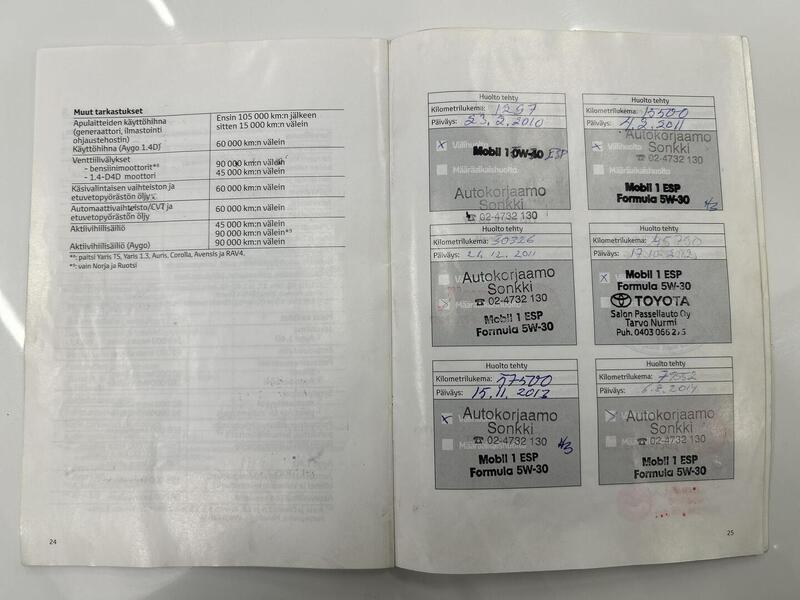 Muut tarkastukset
Apulaitteiden käyttöhihna Ensin 105 000 km:n jälkeen
(generaattori, ilmastointi sitten 15 000 km:n välein
ohjaustehostin)
Käyttöhihna (Aygo 1.4D) 60 000 km:n välein
Venttiilivälykset
- bensiinimoottorit*⁸ 90 000 km:n välein
- 1.4-D4D moottori 45 000 km:n välein
Käsivalintaisen vaihteiston ja 60 000 km:n välein
etuvetopyörästön öljy
Automaattivaihteisto/CVT ja 60 000 km:n välein
etuvetopyörästön öljy
Aktiivihiilisäiliö 45 000 km:n välein
90 000 km:n välein*⁹
Aktiivihiilisäiliö (Aygo) 90 000 km:n välein
*⁸: paitsi Yaris TS, Yaris 1.3, Auris, Corolla, Avensis ja RAV4.
*⁹: vain Norja ja Ruotsi
24
Huolto tehty
Kilometrilukema: 1297
Päiväys: 23.2.2010
Välihuolto
Mobil 1 0W-30 ESP
Määräaikaishuolto
Autokorjaamo
Sonkki
☎ 02-4732 130
Huolto tehty
Kilometrilukema: 15500
Päiväys: 4.2.2011
Autokorjaamo
Välihuolto
Sonkki
☎ 02-4732 130
Mobil 1 ESP
Formula 5W-30
Huolto tehty
Kilometrilukema: 30326
Päiväys: 21.12.2011
Autokorjaamo
Sonkki
☎ 02-4732 130
Mobil 1 ESP
Formula 5W-30
Huolto tehty
Kilometrilukema: 45790
Päiväys:
Mobil 1 ESP
Formula 5W-30
TOYOTA
Salon Passeliauto Oy
Tarvo Nurmi
Puh. 0403 066 275
Huolto tehty
Kilometrilukema: 57500
Päiväys: 15.11.2013
Autokorjaamo
Sonkki
☎ 02-4732 130
Mobil 1 ESP
Formula 5W-30
Huolto tehty
Kilometrilukema:
Päiväys: 6.8.2014
Autokorjaamo
Sonkki
☎ 02-4732 130
Mobil 1 ESP
Formula 5W-30
25